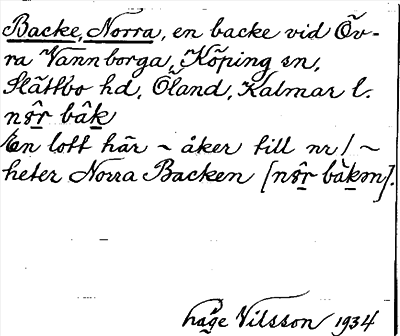 Backe, Norra, en backe vid Öv-
ra Vannborga, Köping sn,
Slättbo hd, Öland, Kalmar l.
nŝr̲ bâk̲
En lott här ~ åker till nr 1 ~
heter Norra Backen [nŝr̲ bàk̲m].
Åge Nilsson 1934